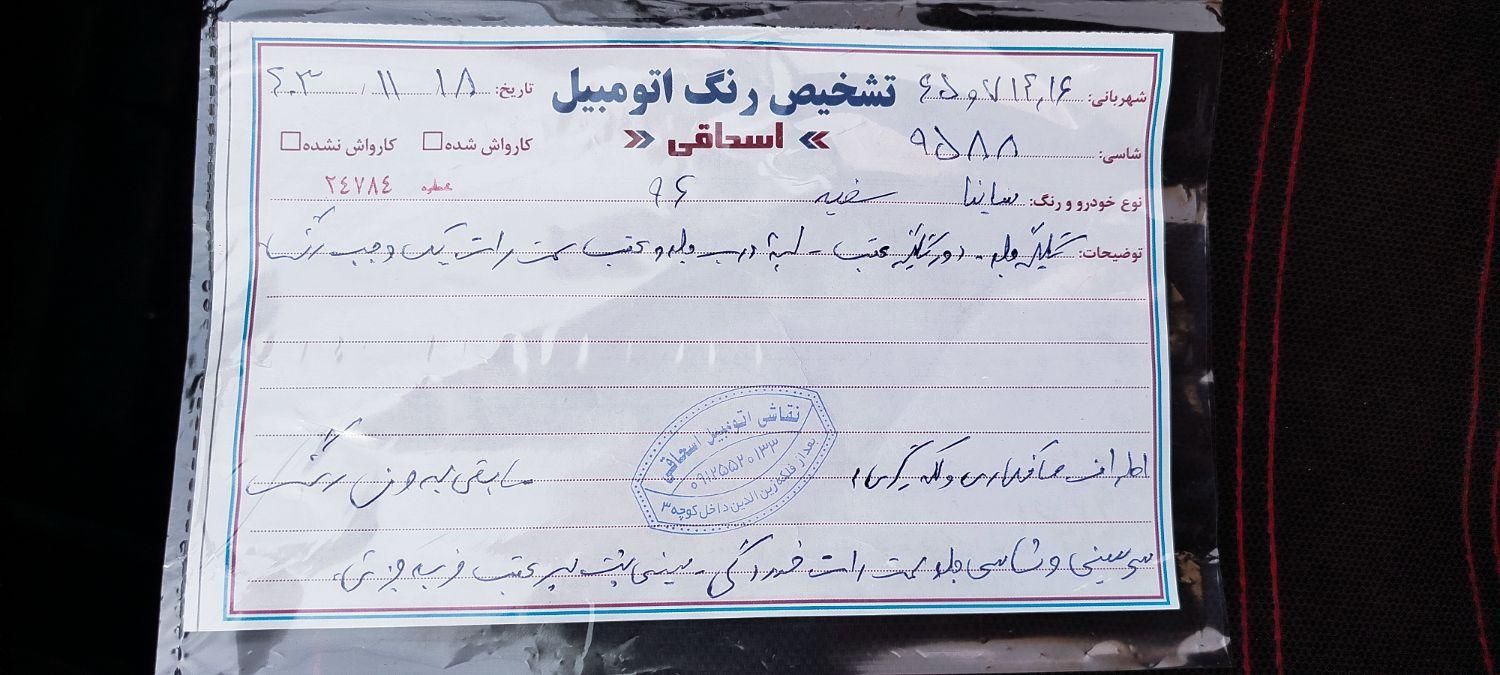 شهربانی: ۶۵ و ۷۱۴,۱۶ تشخیص رنگ اتومبیل تاریخ: ۱۸ / ۱۱ / ۴۰۳
شاسی: ۹۵۸۸ اسحاقی کارواش شده کارواش نشده
نوع خودرو و رنگ: ساینا سفید ۹۶ ۲۴۷۸۴
توضیحات: گلگیر جلو - دور گلگیر عقب - لبه درب جلو و عقب سمت راست یک وجب رنگ
نقاشی اتومبیل اسحاقی
۰۹۱۲۵۵۲۰۱۳۳
بعد از فلکه زین الدین داخل کوچه ۳
اطراف صافکاری و لکه گیری، مابقی بدون رنگ
سر سینی و شاسی جلو سمت راست خوردگی - سینی پشت سپر عقب ضربه جزئی